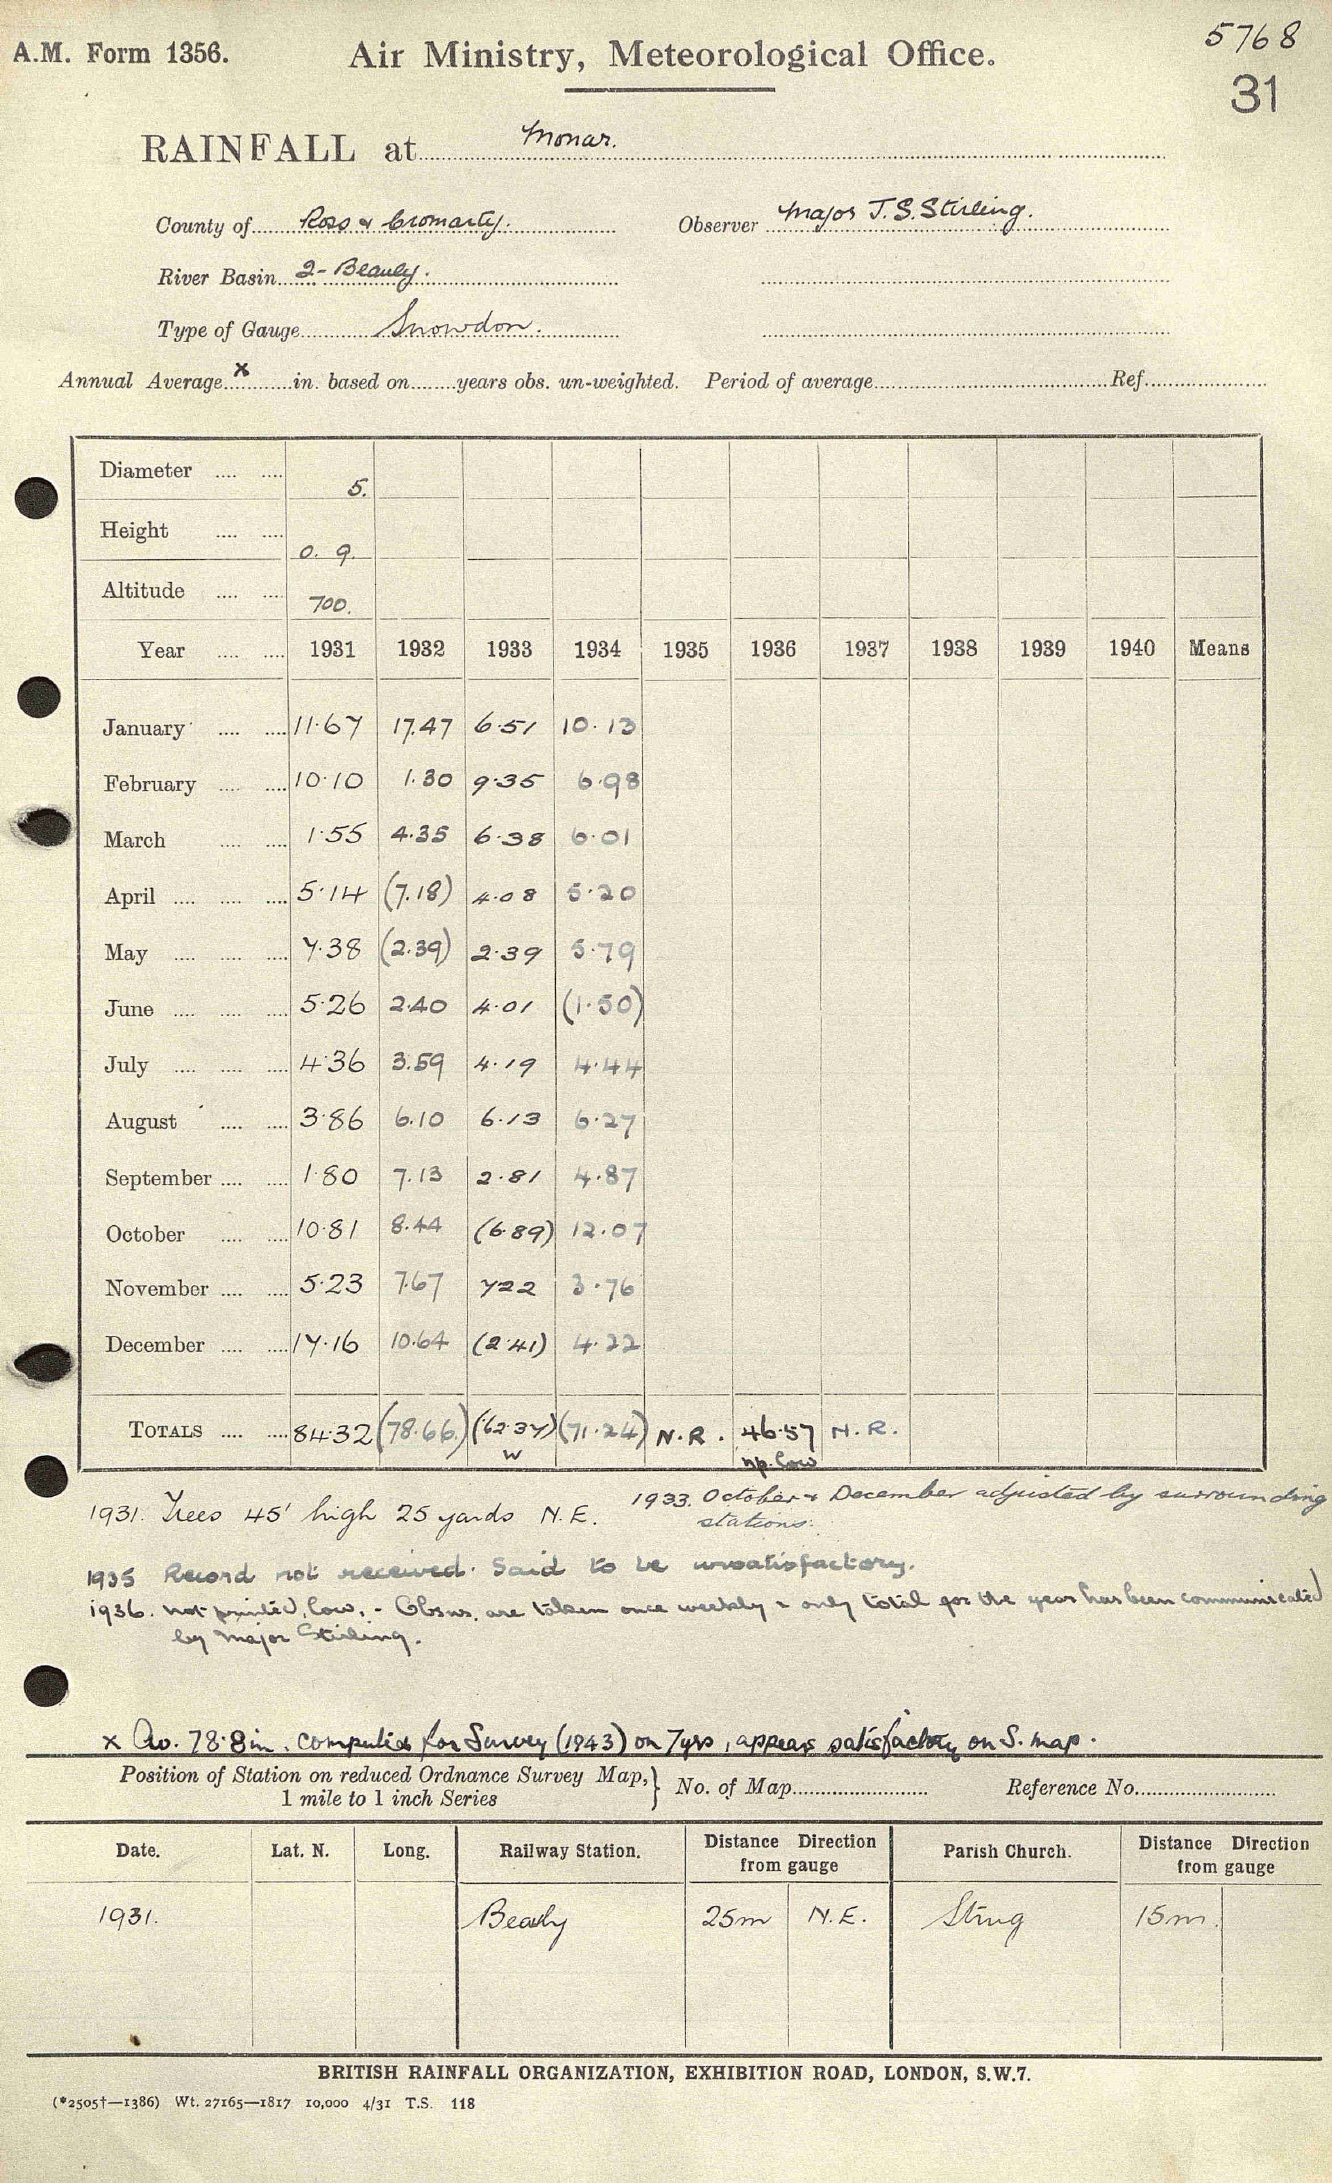 5768
A.M. Form 1356. Air Ministry, Meteorological Office.
31
RAINFALL at Monar.
County of Ross & Cromarty. Observer Major J. S. Stirling.
River Basin 2- Beauly.
Type of Gauge Snowdon.
Annual Average x in. based on years obs. un-weighted. Period of average Ref.
Diameter 5.
Height 0. 9.
Altitude 700.
Year 1931 1932 1933 1934 1935 1936 1937 1938 1939 1940 Means
January 11.67 17.47 6.51 10.13
February 10.10 1.30 9.35 6.98
March 1.55 4.35 6.38 6.01
April 5.14 (7.18) 4.08 5.20
May 7.38 (2.39) 2.39 5.79
June 5.26 2.40 4.01 (1.50)
July 4.36 3.59 4.19 4.44
August 3.86 6.10 6.13 6.27
September 1.80 7.13 2.81 4.87
October 10.81 8.44 (6.89) 12.07
November 5.23 7.67 7.22 3.76
December 17.16 10.64 (2.41) 4.22
TOTALS 84.32 (78.66) (62.37) (71.24) N.R. 46.57 N.R.
W np. low
1931. Trees 45' high 25 yards N.E. 1933. October & December adjusted by surrounding
stations.
1935 Record not received. Said to be unsatisfactory.
1936. not printed, low. - Obsns. are taken once weekly & only total for the year has been communicated
by Major Stirling.
x Av. 78.8in. computed for Survey (1943) on 7yrs, appears satisfactory on S. map.
Position of Station on reduced Ordnance Survey Map,} No. of Map Reference No.
1 mile to 1 inch Series
Date. Lat. N. Long. Railway Station. Distance Direction from gauge Parish Church. Distance Direction from gauge
1931. Beauly 25m N.E. Strug 15m.
BRITISH RAINFALL ORGANIZATION, EXHIBITION ROAD, LONDON, S.W.7.
(*2505†—1386) Wt. 27165—1817 10,000 4/31 T.S. 118